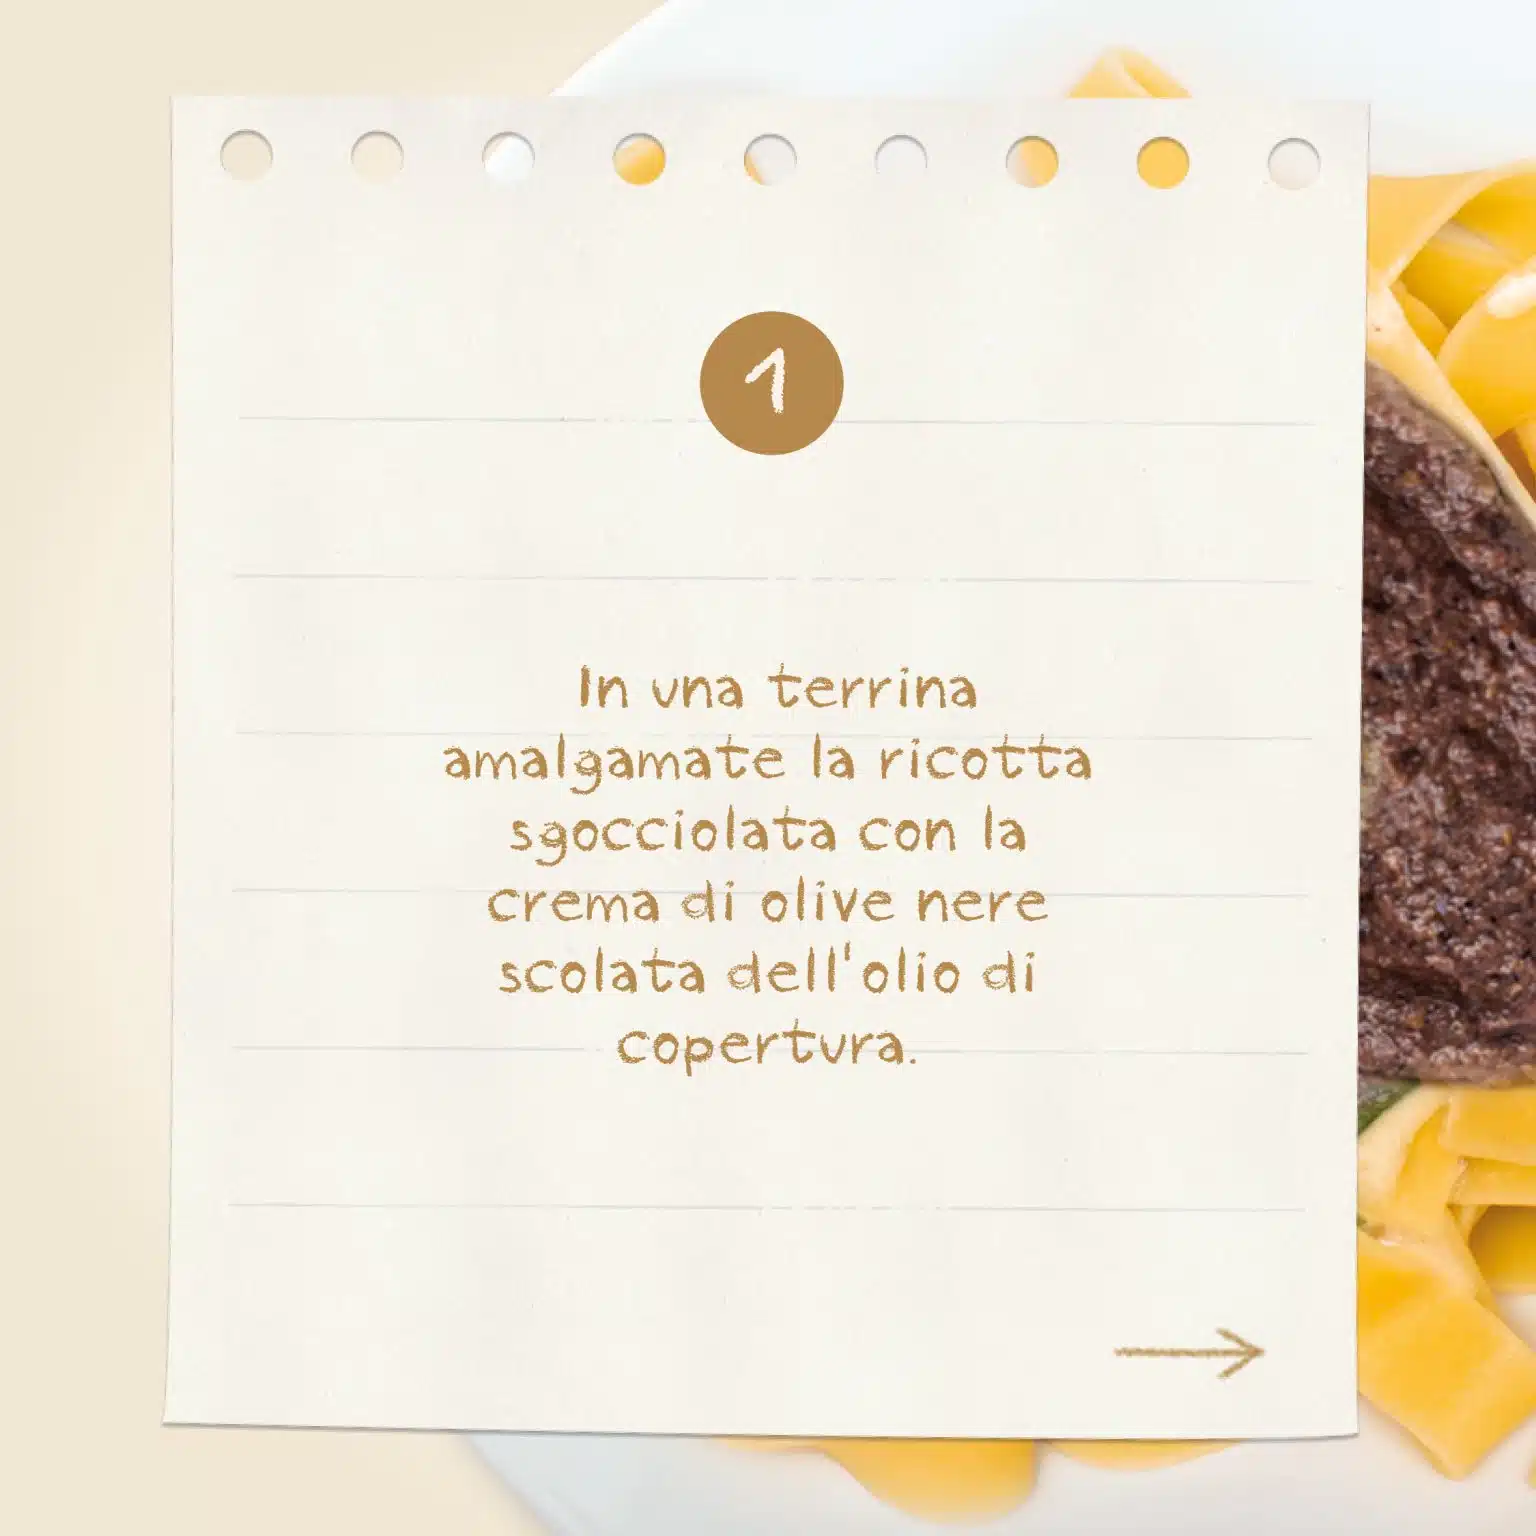 1
In una terrina
amalgamate la ricotta
sgocciolata con la
crema di olive nere
scolata dell'olio di
copertura.